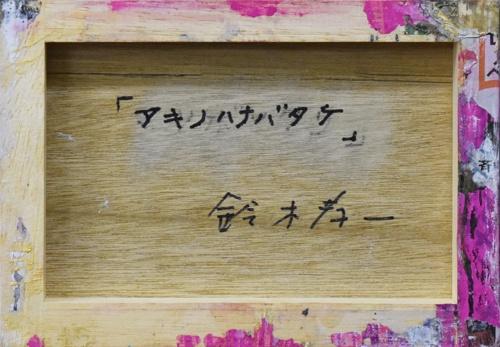 「アキノハナバタケ」
鈴木
一